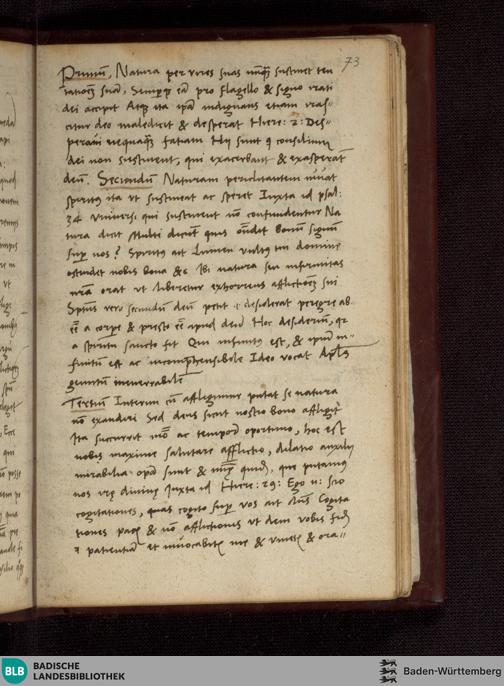 73
Primum, Natura per vires suas nunquam sustinet ten
tationem suam, Semper eam pro flagello & signo irati
dei accipit Atque ita ipsa indignans etiam iras-
citur deo maledicit & desperat Hiere: 2: Des-
peravi nequaquam faciam Hij sunt qui consilium
dei non sustinent, qui exacerbant & exasperant
deum. Secundum Naturam periclitantem iuvat
spiritus ita ut sustineat ac speret Iuxta id psal:
34 Universi qui sustinent non confundentur Na
tura dicit Multi dicunt quis ostendit bonum signum
super nos? Spiritus ait Lumen vultus tui domine
ostendet nobis bona &c Ibi natura sua infirmitas
orat ut liberetur
Spiritus vero secundum deum petit desiderat peregre ab-
esse a corpore & presto esse apud deum Hoc desiderium, quia
a spiritu sancto fit Qui infinitus est, & ipsum in-
finitum est ac incomprehensibile Ideo vocat Apostolus
gemitum inenarrabile
Tertium Interim cum affligimur putat se natura
non exaudiri Sed deus sicut nostro bono affligit
Ita succurrit modo ac tempore oportuno, hoc est
nobis maxime salutare afflictio, dilatio auxilij
mirabilia opera sunt & que putamus
nos Iuxta id Hiere: 29: Ego n: scio
cogitationes, quas cogito super vos ait Dominus Cogita
tiones pacis & non afflictionis ut dem vobis finem
& patientiam et invocabitis me & vivetis & ora-
BLB BADISCHE
LANDESBIBLIOTHEK
Baden-Württemberg